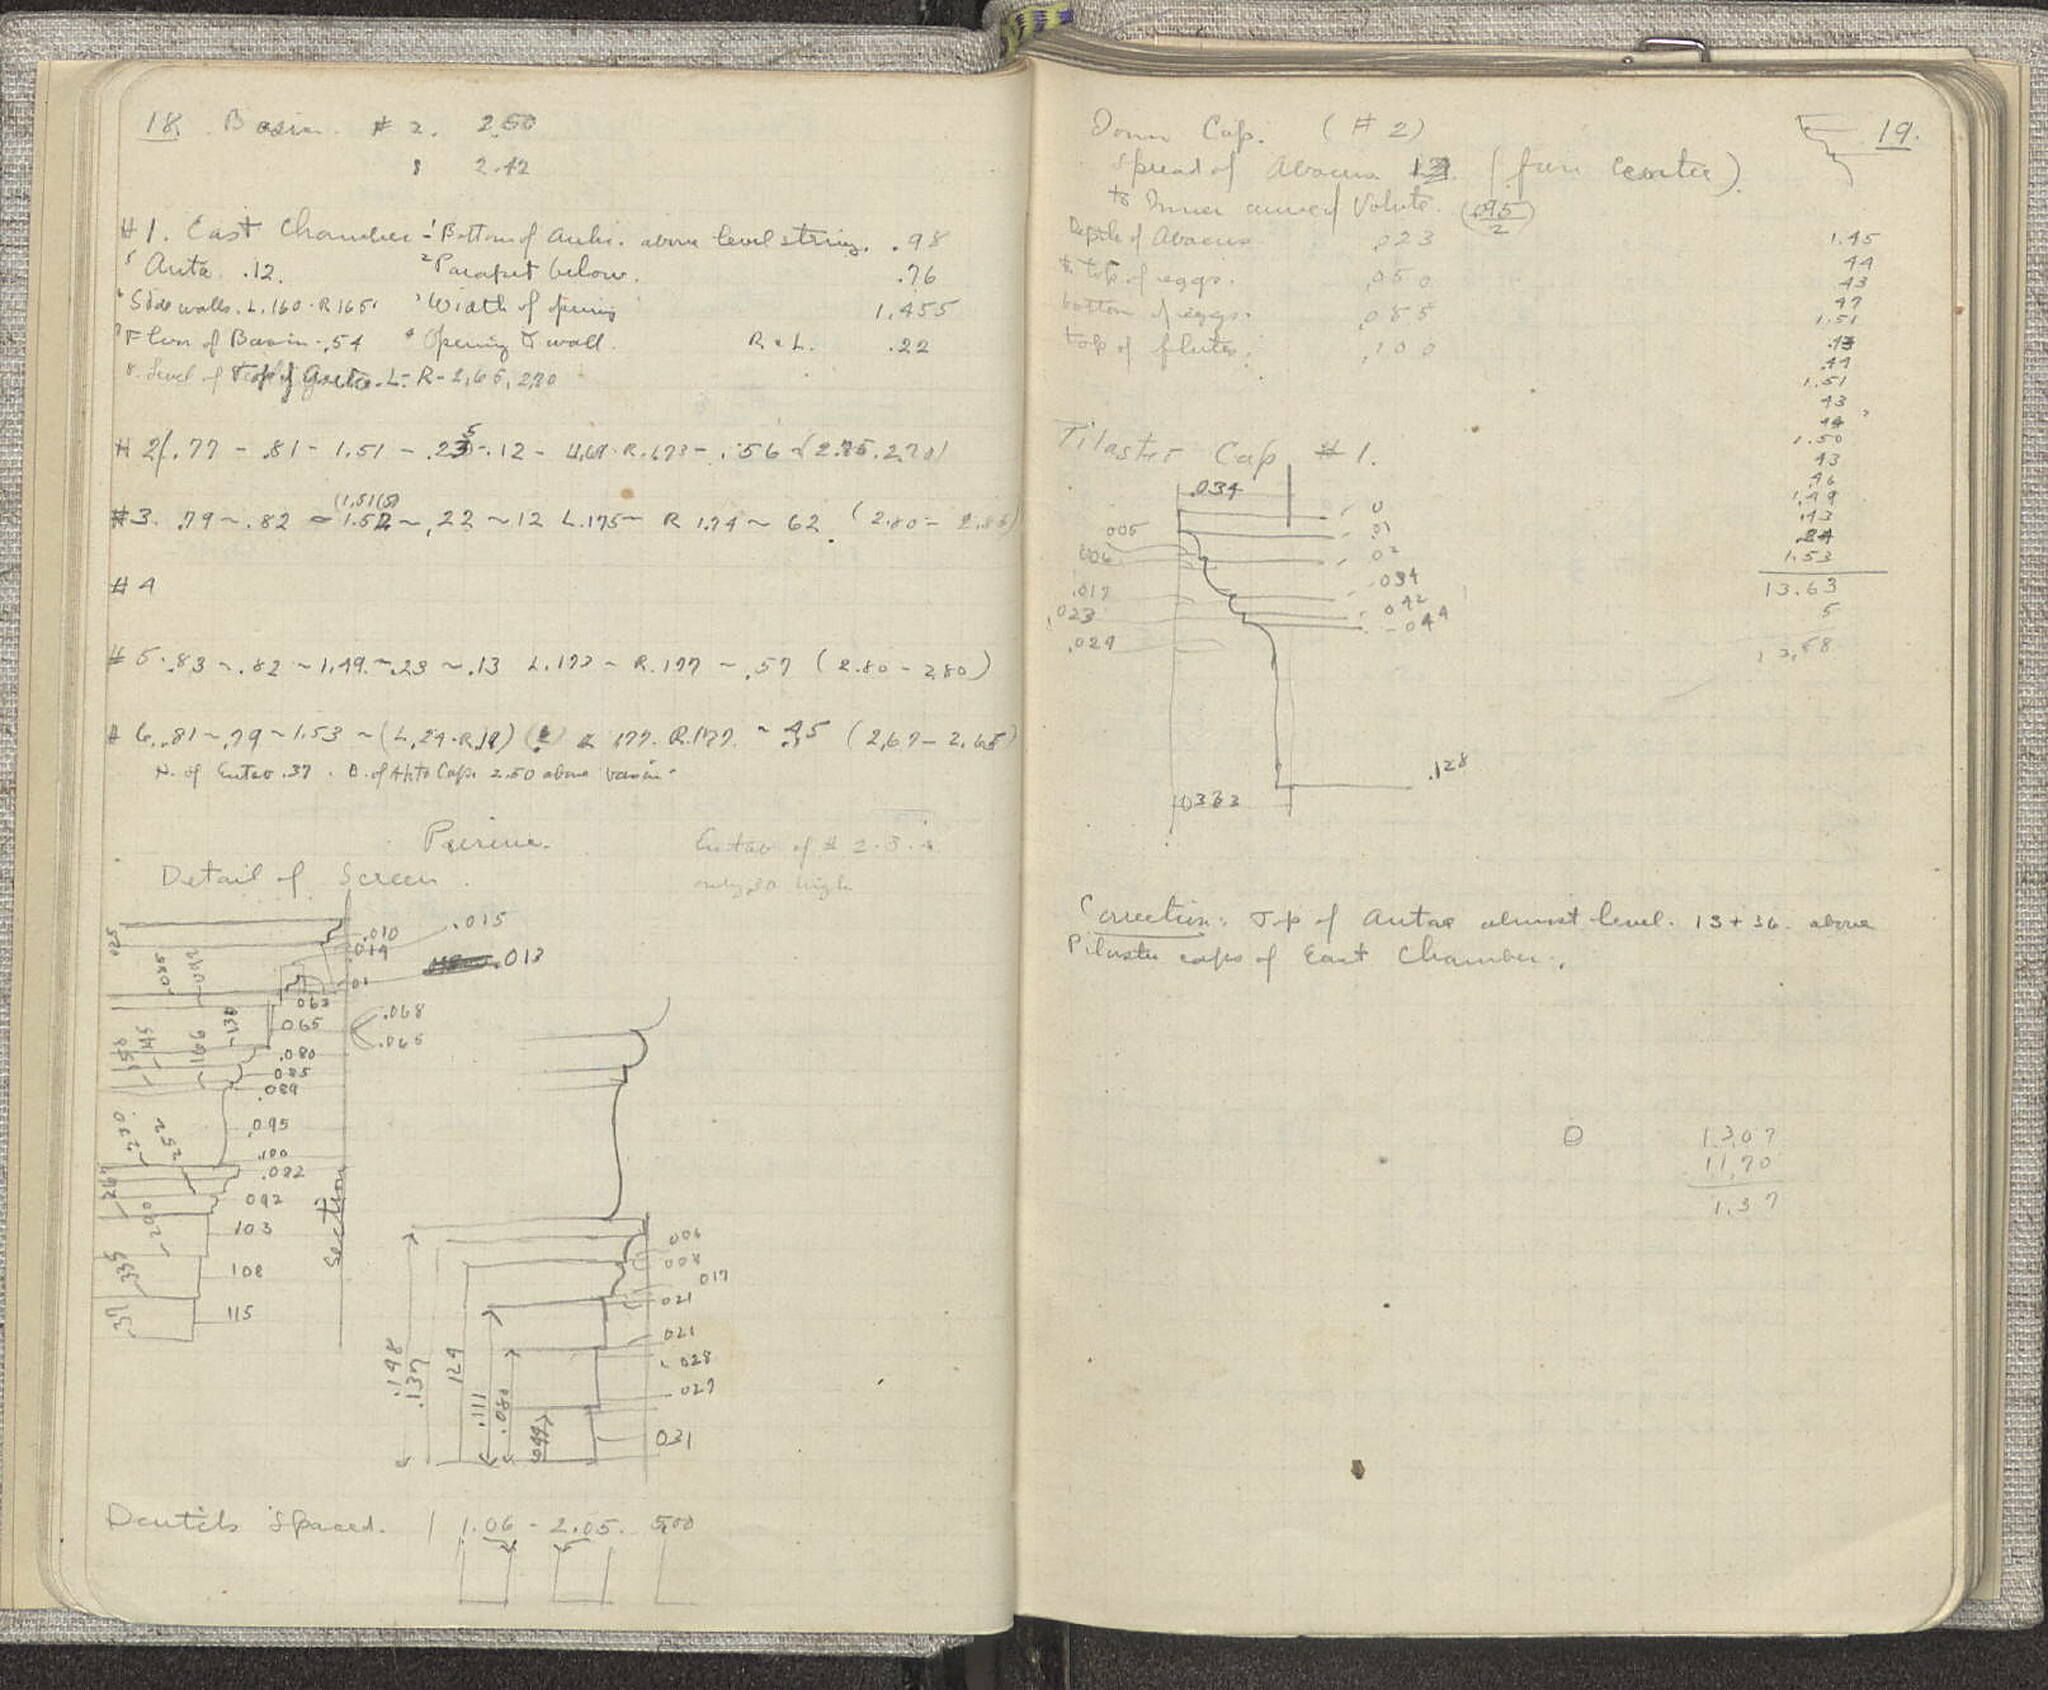 18. Basin. # 2. 2.50
8 2.42
#1. East Chamber - ¹Bottom of Archi. above level string. .98
⁵ Anta .12. ²Parapet below. .76
⁶ Side walls. L.160 - R 165. ³ Width of opening 1.455
⁷ Floor of Basin - .54 ⁴ Opening to wall. R & L. .22
⁸ Level of Top of L - R - 2.65, 2.70
# 2/ .77 - .81 - 1.51 - .235 - .12 - R.173 - .56
(1.51(5)
#3. .79 ~ .82 ~ 1.52 ~ .22 ~ 12 L.175 ~ R 174 ~ 62. (2.80 - 2.85)
# 4
# 5. .83 ~ .82 ~ 1.49 ~ .23 ~ .13 L.177 ~ R.177 ~ .57 (2.80 - 2.80)
# 6. .81 ~ .79 ~ 1.53 ~ (L.24 - R.19) L 177. R.177. ~ .45 (2.67 - 2.65)
H. of Entab .37. B. of Cap. 2.50 above basin.
Peirene.
Entab of # 2.3.4
only .30 high
Detail of Screen.
.025
.010
.015
.014
.013
.035
.042
.01
.063
.065
.068
.065
.138
.145
.158
.166
.080
.085
.089
.095
.100
.082
.092
103
108
115
.230
.252
.267
.290
.335
.37
Section
006
008
017
021
021
.028
.027
031
.198
.137
129
.111
.080
.044
Dentils Spaced. 1 1.06 - 2.05. 5.00
19.
Cap. (# 2)
Spread of Abacus 13. (from Center).
to Inner curve of Volute. (.095/2)
Depth of Abacus .023
to top of eggs. .050
bottom of eggs. .085
top of flutes. .100
1.45
44
43
47
1.51
.43
.44
1.51
43
44
1.50
43
.46
1.49
.43
.24
1.53
13.63
5
13.68
Pilaster Cap #1.
.034
0
.01
.02
.034
.042
.044
005
006
.017
.023
.029
.128
.0363
Correction: Top of Antae almost level. 13 + 36. above
Pilaster caps of East Chamber.
13.07
11.70
1.37